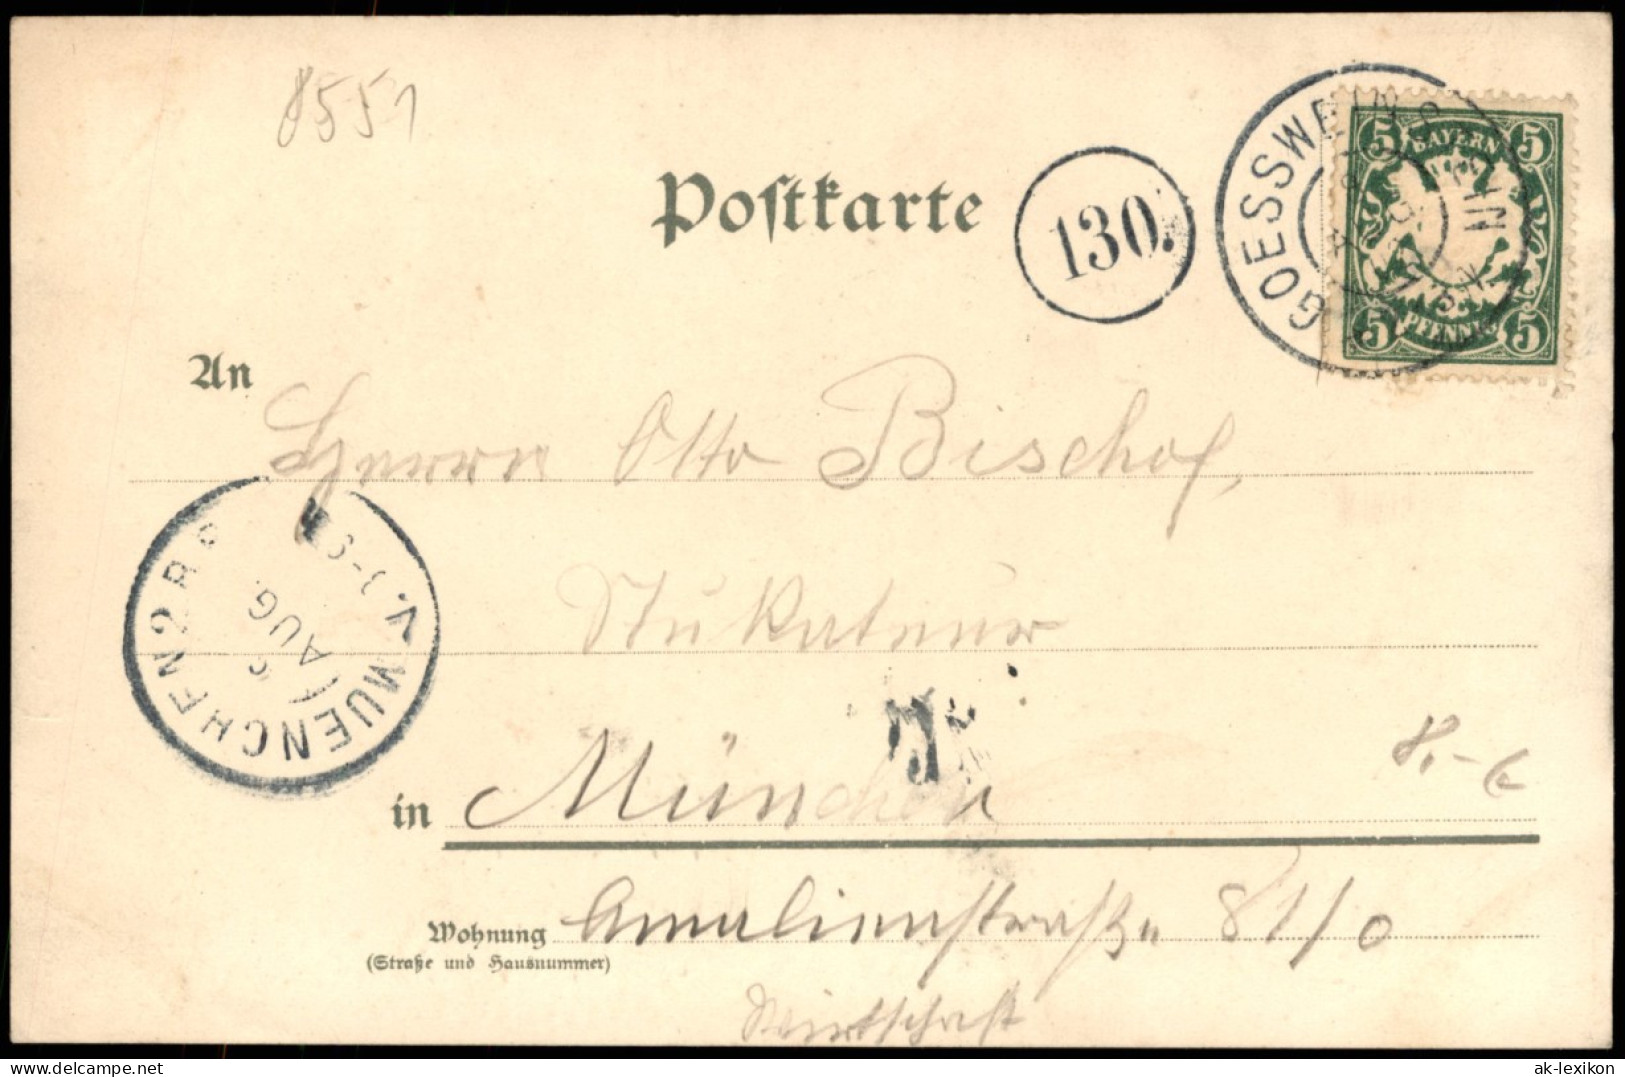 8551
Postkarte
130.
GOESSWEINSTEIN
BAYERN
5 5
5 5
PFENNIG
An Herrn Otto Bischof,
Stukateur
MUENCHEN 2 B.P.
AUG.
V. 8-9
in München
8.-
Wohnung Amalienstraße 81/0
(Straße und Hausnummer)
Wirtschaft
ak-lexikon